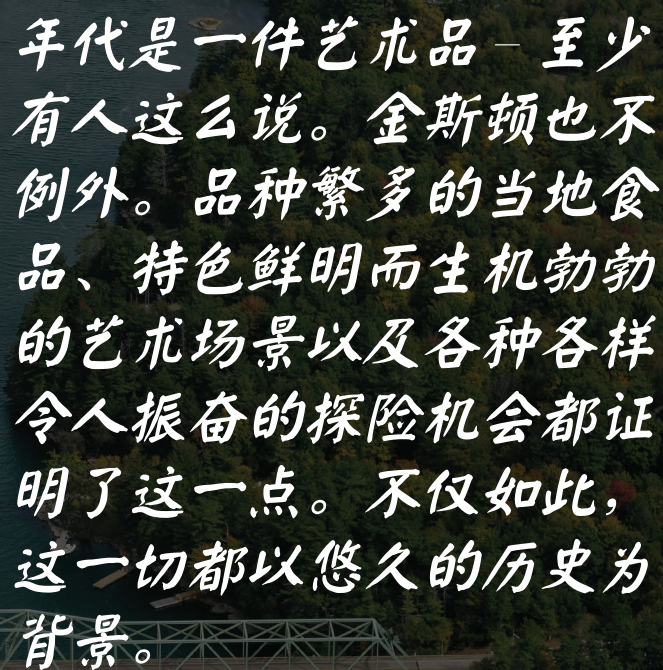 年代是一件艺术品 – 至少
有人这么说。金斯顿也不
例外。品种繁多的当地食
品、特色鲜明而生机勃勃
的艺术场景以及各种各样
令人振奋的探险机会都证
明了这一点。不仅如此，
这一切都以悠久的历史为
背景。